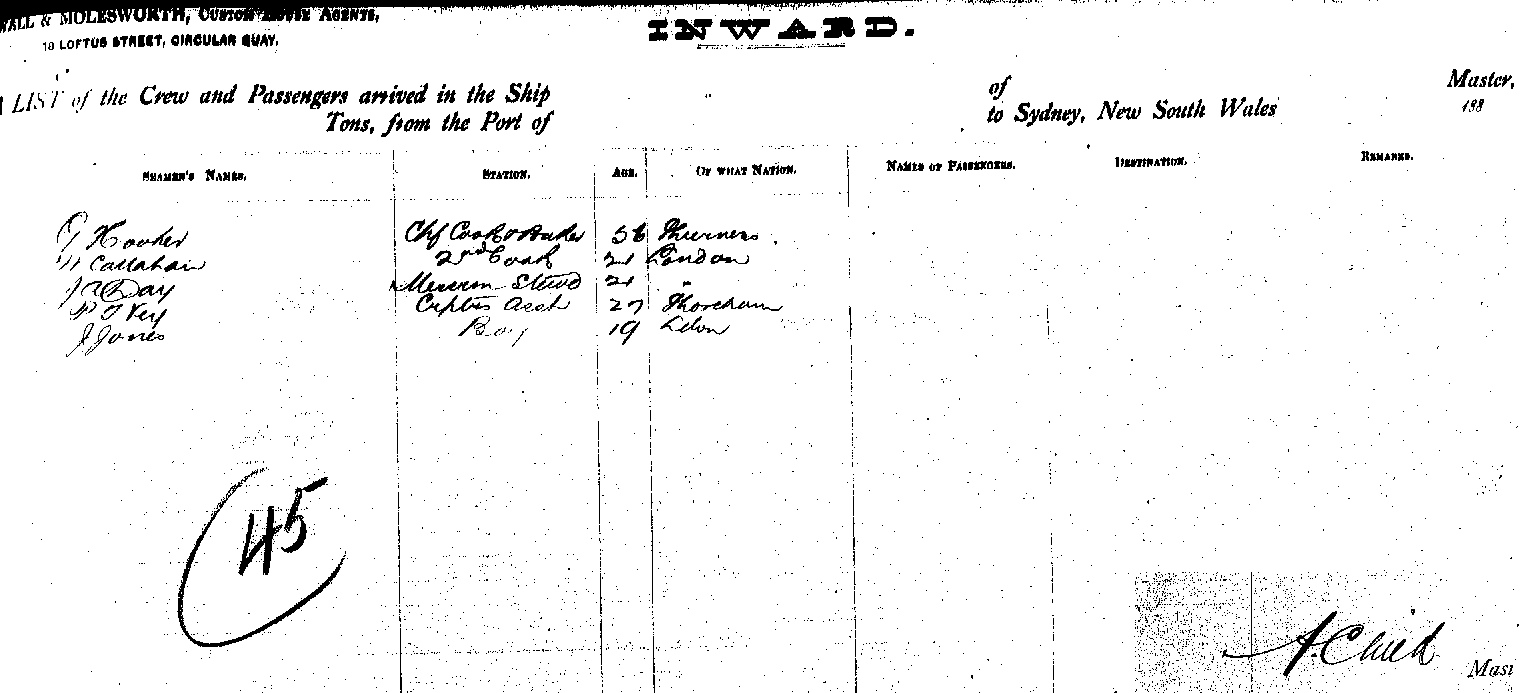 WALL & MOLESWORTH, CUSTOM HOUSE AGENTS,
10 LOFTUS STREET, CIRCULAR QUAY.
INWARD.
LIST of the Crew and Passengers arrived in the Ship of Master,
Tons, from the Port of to Sydney, New South Wales 188
SEAMEN'S NAMES. STATION. AGE. OF WHAT NATION. NAMES OF PASSENGERS. DESTINATION. REMARKS.
G Hooker Chf Cook & Baker 36
Callahan 2nd Cook 21 London
Day Stewd 21 "
Key Asst 27 Shoreham
J Jones Boy 19 Ldon
45
A. Child Mast